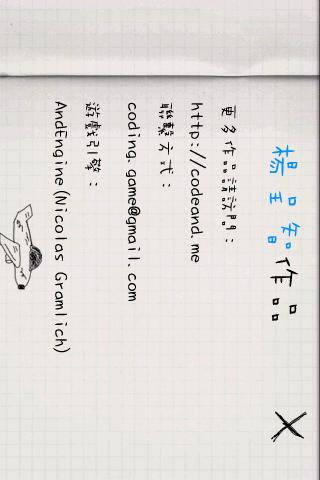 楊昱智作品
更多作品請訪問：
http://codeand.me
聯繫方式：
coding.game@gmail.com
遊戲引擎：
AndEngine(Nicolas Gramlich)